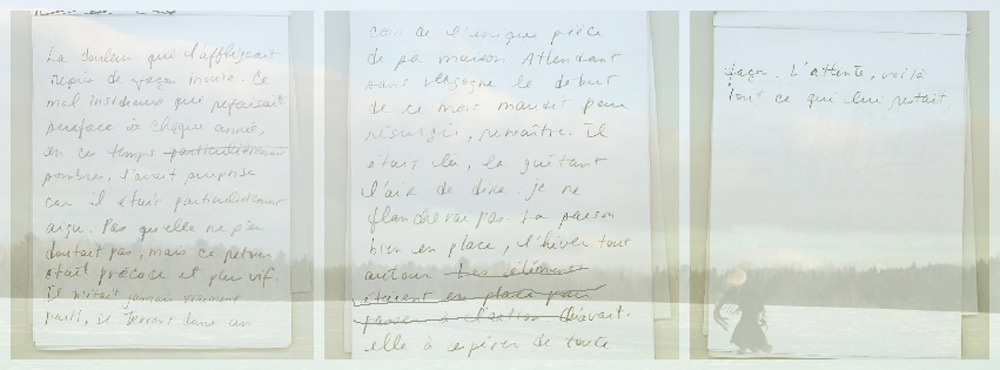 La douleur qui l'affligeait
depuis de façon inouïe. Ce
mal insidieux qui refaisait
surface à chaque année,
en ces temps particulièrement
sombres, l'avait surprise
car il était particulièrement
aigu. Pas qu'elle ne s'en
doutait pas, mais ce retour
était précoce et plus vif.
Il n'était jamais vraiment
parti, se terrant dans un
coin de l'unique pièce
de sa maison. Attendant
sans vergogne le début
de ce mois maudit pour
résurgir, renaître. Il
était là, la guêtant
l'air de dire : je ne
flancherai pas. La saison
bien en place, l'hiver tout
autour Les éléments
étaient en place pour
passer à l'action
elle à espérer de toute
façon. L'attente, voilà
tout ce qui lui restait.